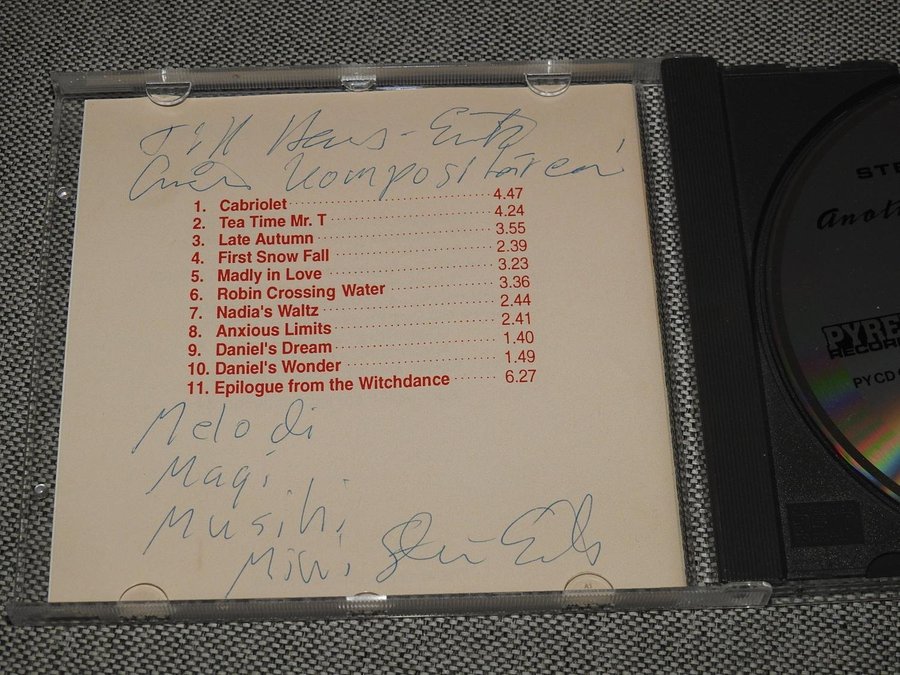 Till Hans-Erik
Kompositören!
1. Cabriolet 4.47
2. Tea Time Mr. T 4.24
3. Late Autumn 3.55
4. First Snow Fall 2.39
5. Madly in Love 3.23
6. Robin Crossing Water 3.36
7. Nadia's Waltz 2.44
8. Anxious Limits 2.41
9. Daniel's Dream 1.40
10. Daniel's Wonder 1.49
11. Epilogue from the Witchdance 6.27
Melodi
Magi
Musiki
Mini
STE
Anot
PYRE
RECOR
PYCD